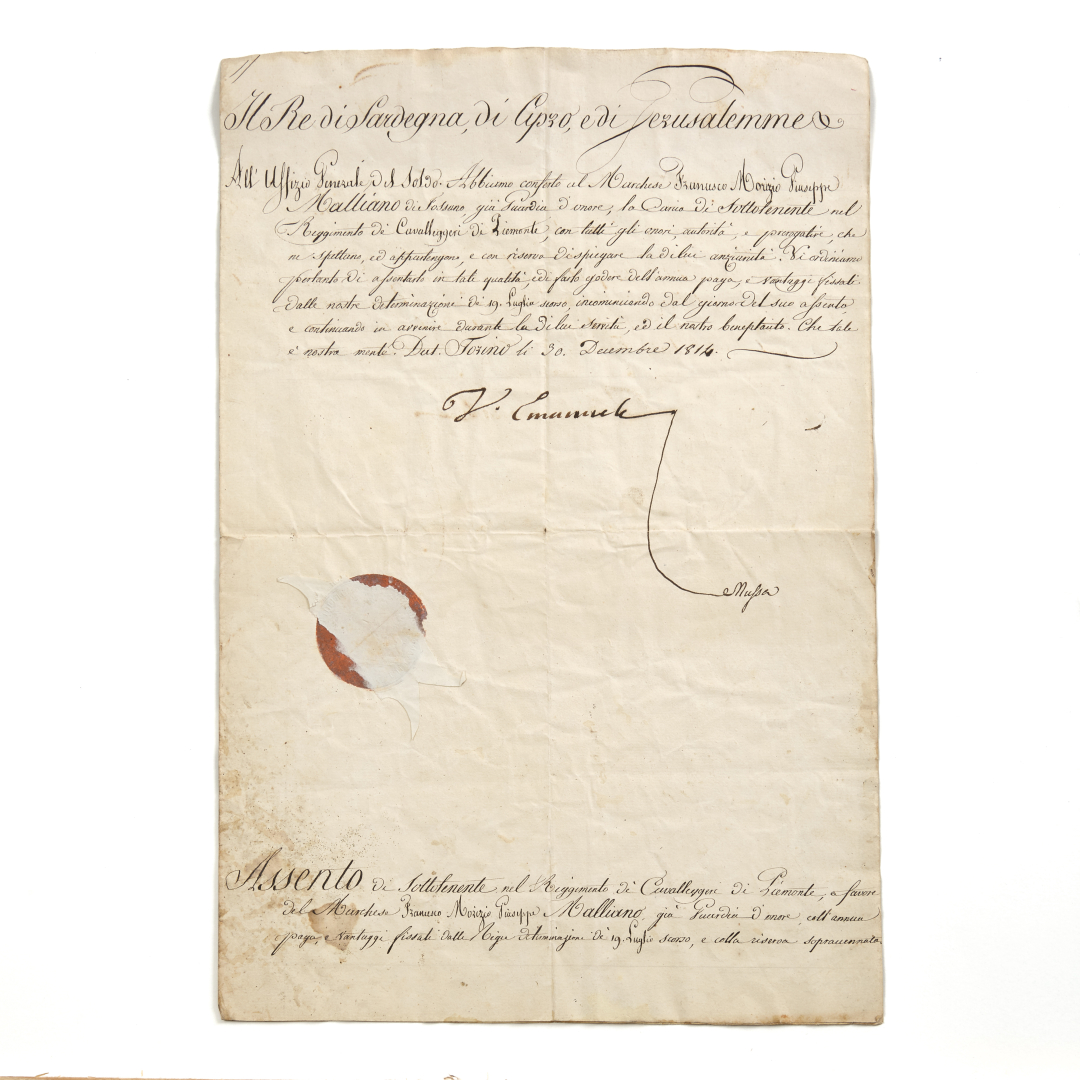 Il Re di Sardegna, di Cipro, e di Jerusalemme &
All' Uffizio Generale del Soldo. Abbiamo conferto al Marchese Francesco Morizio Giuseppe
Malliano di Fossano già Guardia d'onore, la Carica di Sottotenente nel
Reggimento di Cavalleggeri di Piemonte, con tutti gli onori, autorità, e prerogative, che
ne spettano, ed appartengono, e con riserva di spiegare la di lui anzianità. Vi ordiniamo
pertanto di assentarlo in tale qualità, e di farlo godere dell'annua paga, e vantaggi fissati
dalle nostre determinazioni di 19. Luglio scorso, incominciando dal giorno del suo assento,
e continuando in avvenire durante la di lui servitù, ed il nostro beneplacito. Che tale
è nostra mente. Dat. Torino li 30. Decembre 1814.
V. Emanuele
Assento di Sottotenente nel Reggimento di Cavalleggeri di Piemonte, a favore
del Marchese Francesco Morizio Giuseppe Malliano, già Guardia d'onore, coll'annua
paga, e vantaggi fissati dalle Regie determinazioni di 19. Luglio scorso, e colla riserva sopraccennata.